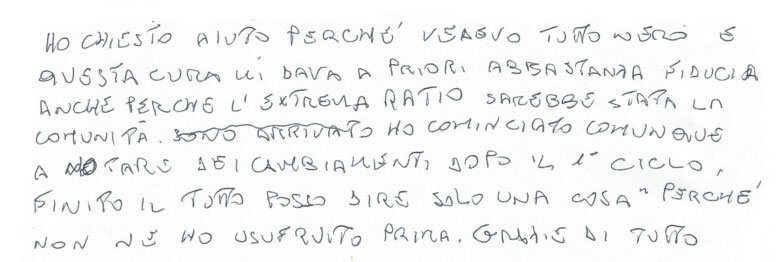 HO CHIESTO AIUTO PERCHE' VEDEVO TUTTO NERO E
QUESTA CURA MI DAVA A PRIORI ABBASTANZA FIDUCIA
ANCHE PERCHE L'EXTREMA RATIO SAREBBE STATA LA
COMUNITÀ. SONO ARRIVATO HO COMINCIATO COMUNQUE
A NOTARE DEI CAMBIAMENTI DOPO IL 1° CICLO,
FINITO IL TUTTO POSSO DIRE SOLO UNA COSA " PERCHE'
NON NE HO USUFRUITO PRIMA. GRAZIE DI TUTTO